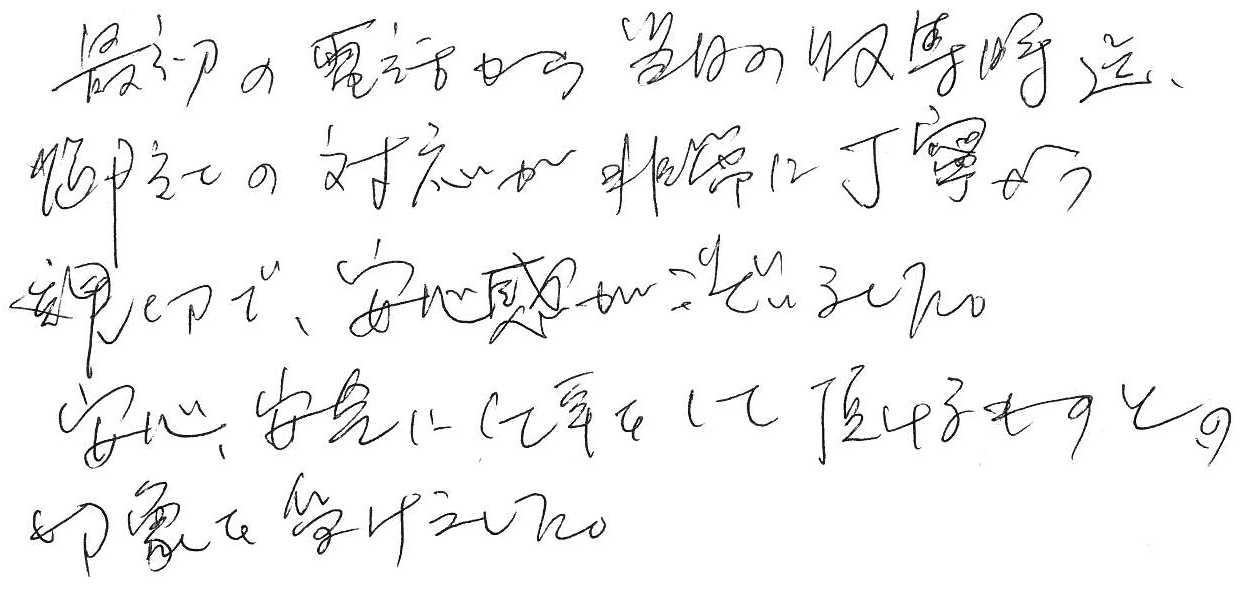 最初の電話から当日の収集時迄、
御社の対応が非常に丁寧かつ
親切で、安心感が漂いました。
安心、安全に仕事をして頂けるものとの
印象を受けました。